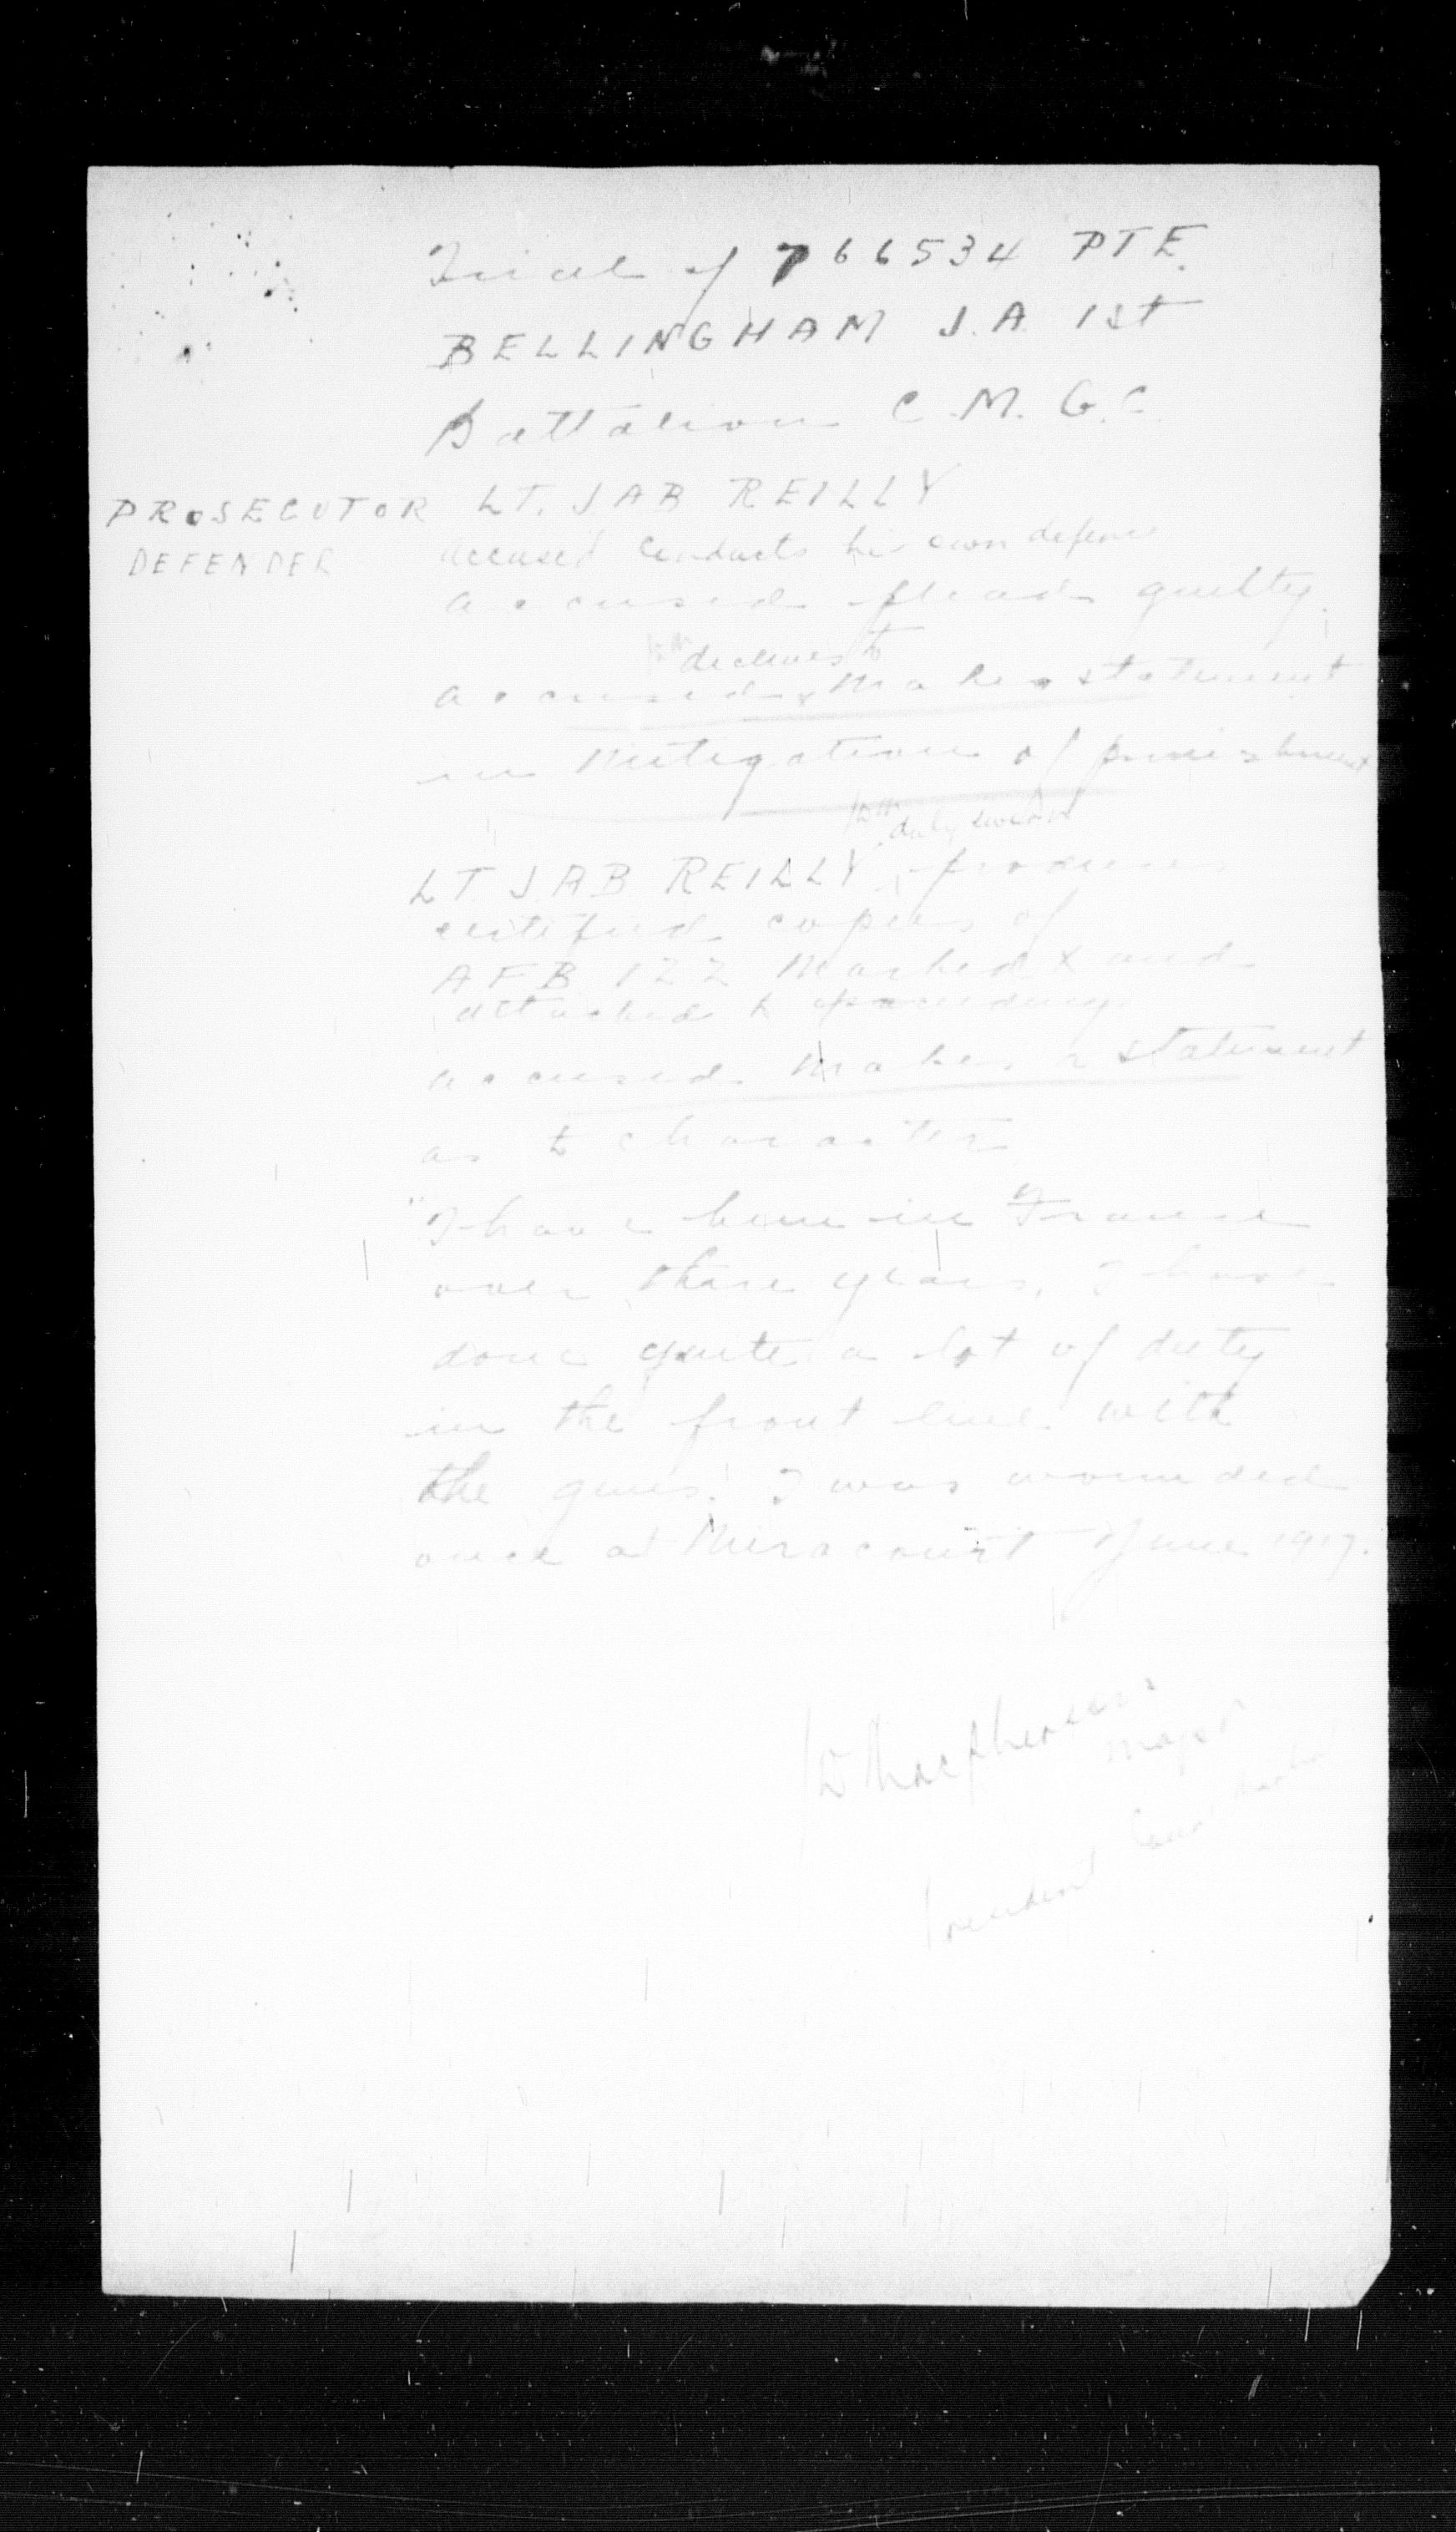 Trial of 766534 PTE.
BELLINGHAM J.A. 1st
Battalion C.M.G.C.
PROSECUTOR LT. JAB REILLY
DEFENDER accused conducts his own defence
accused pleads guilty.
declines to
accused make a statement
in mitigation of punishment
duly sworn
LT. J.A.B REILLY produces
certified copies of
AFB 122 Marked X and
attached to proceedings
accused makes a statement
as to character
"I have been in France
over three years, I have
done quite a lot of duty
in the front line with
the guns. I was wounded
once at June 1917.
Major
President Court Martial